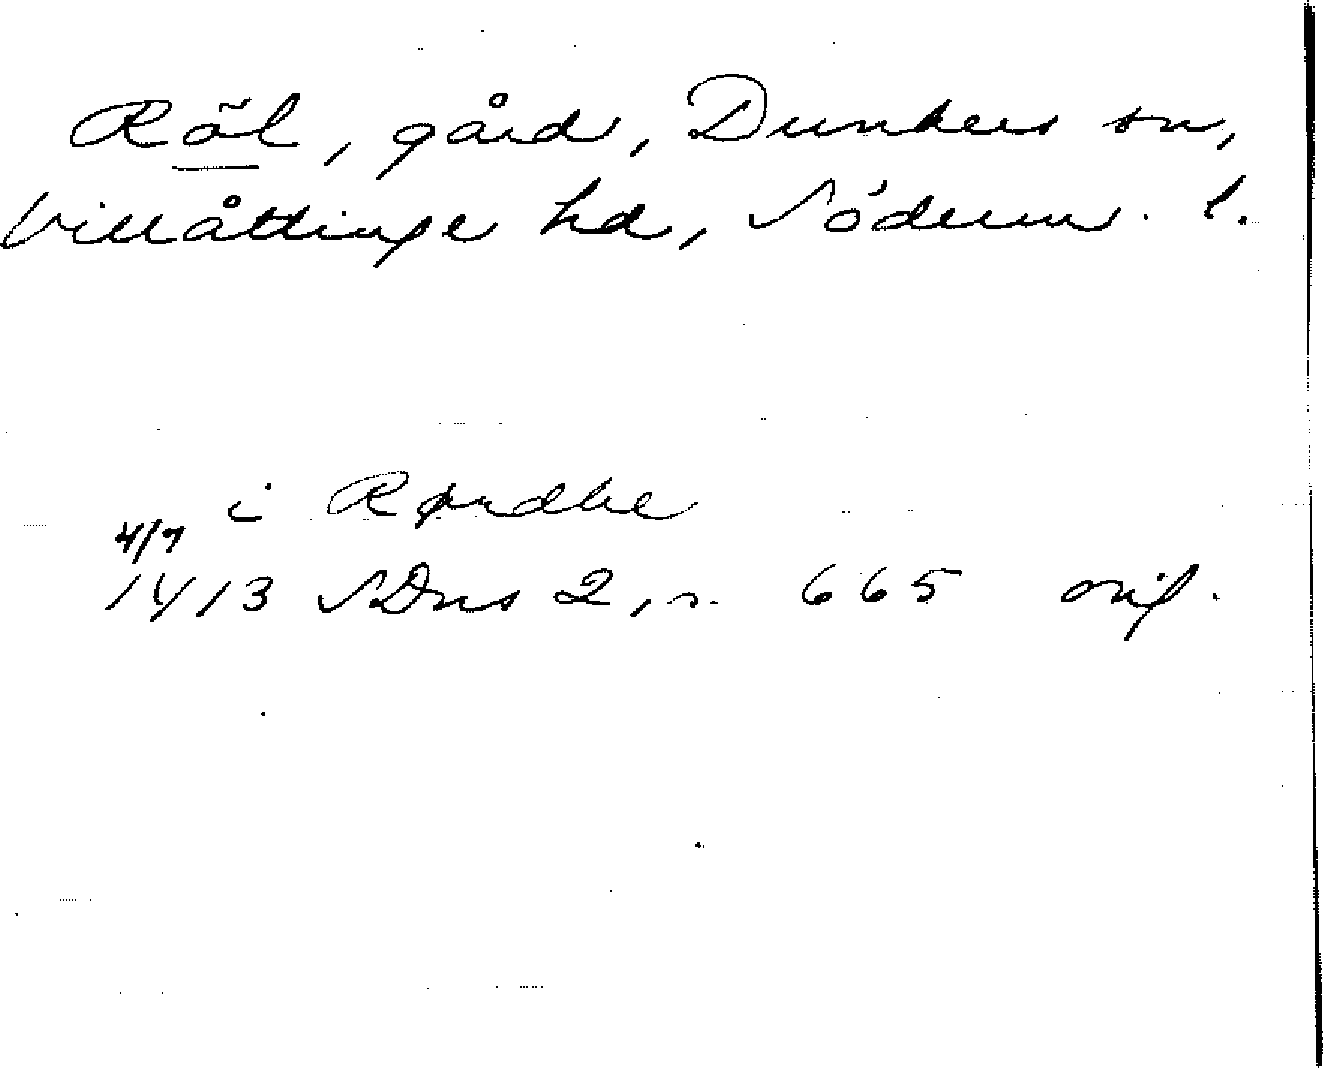 Röl, gård, Dunkers sn,
Villåttinge hd, Söderm. l.
i Rørdhe
4/7
1413 SDns 2, s. 665 orig.